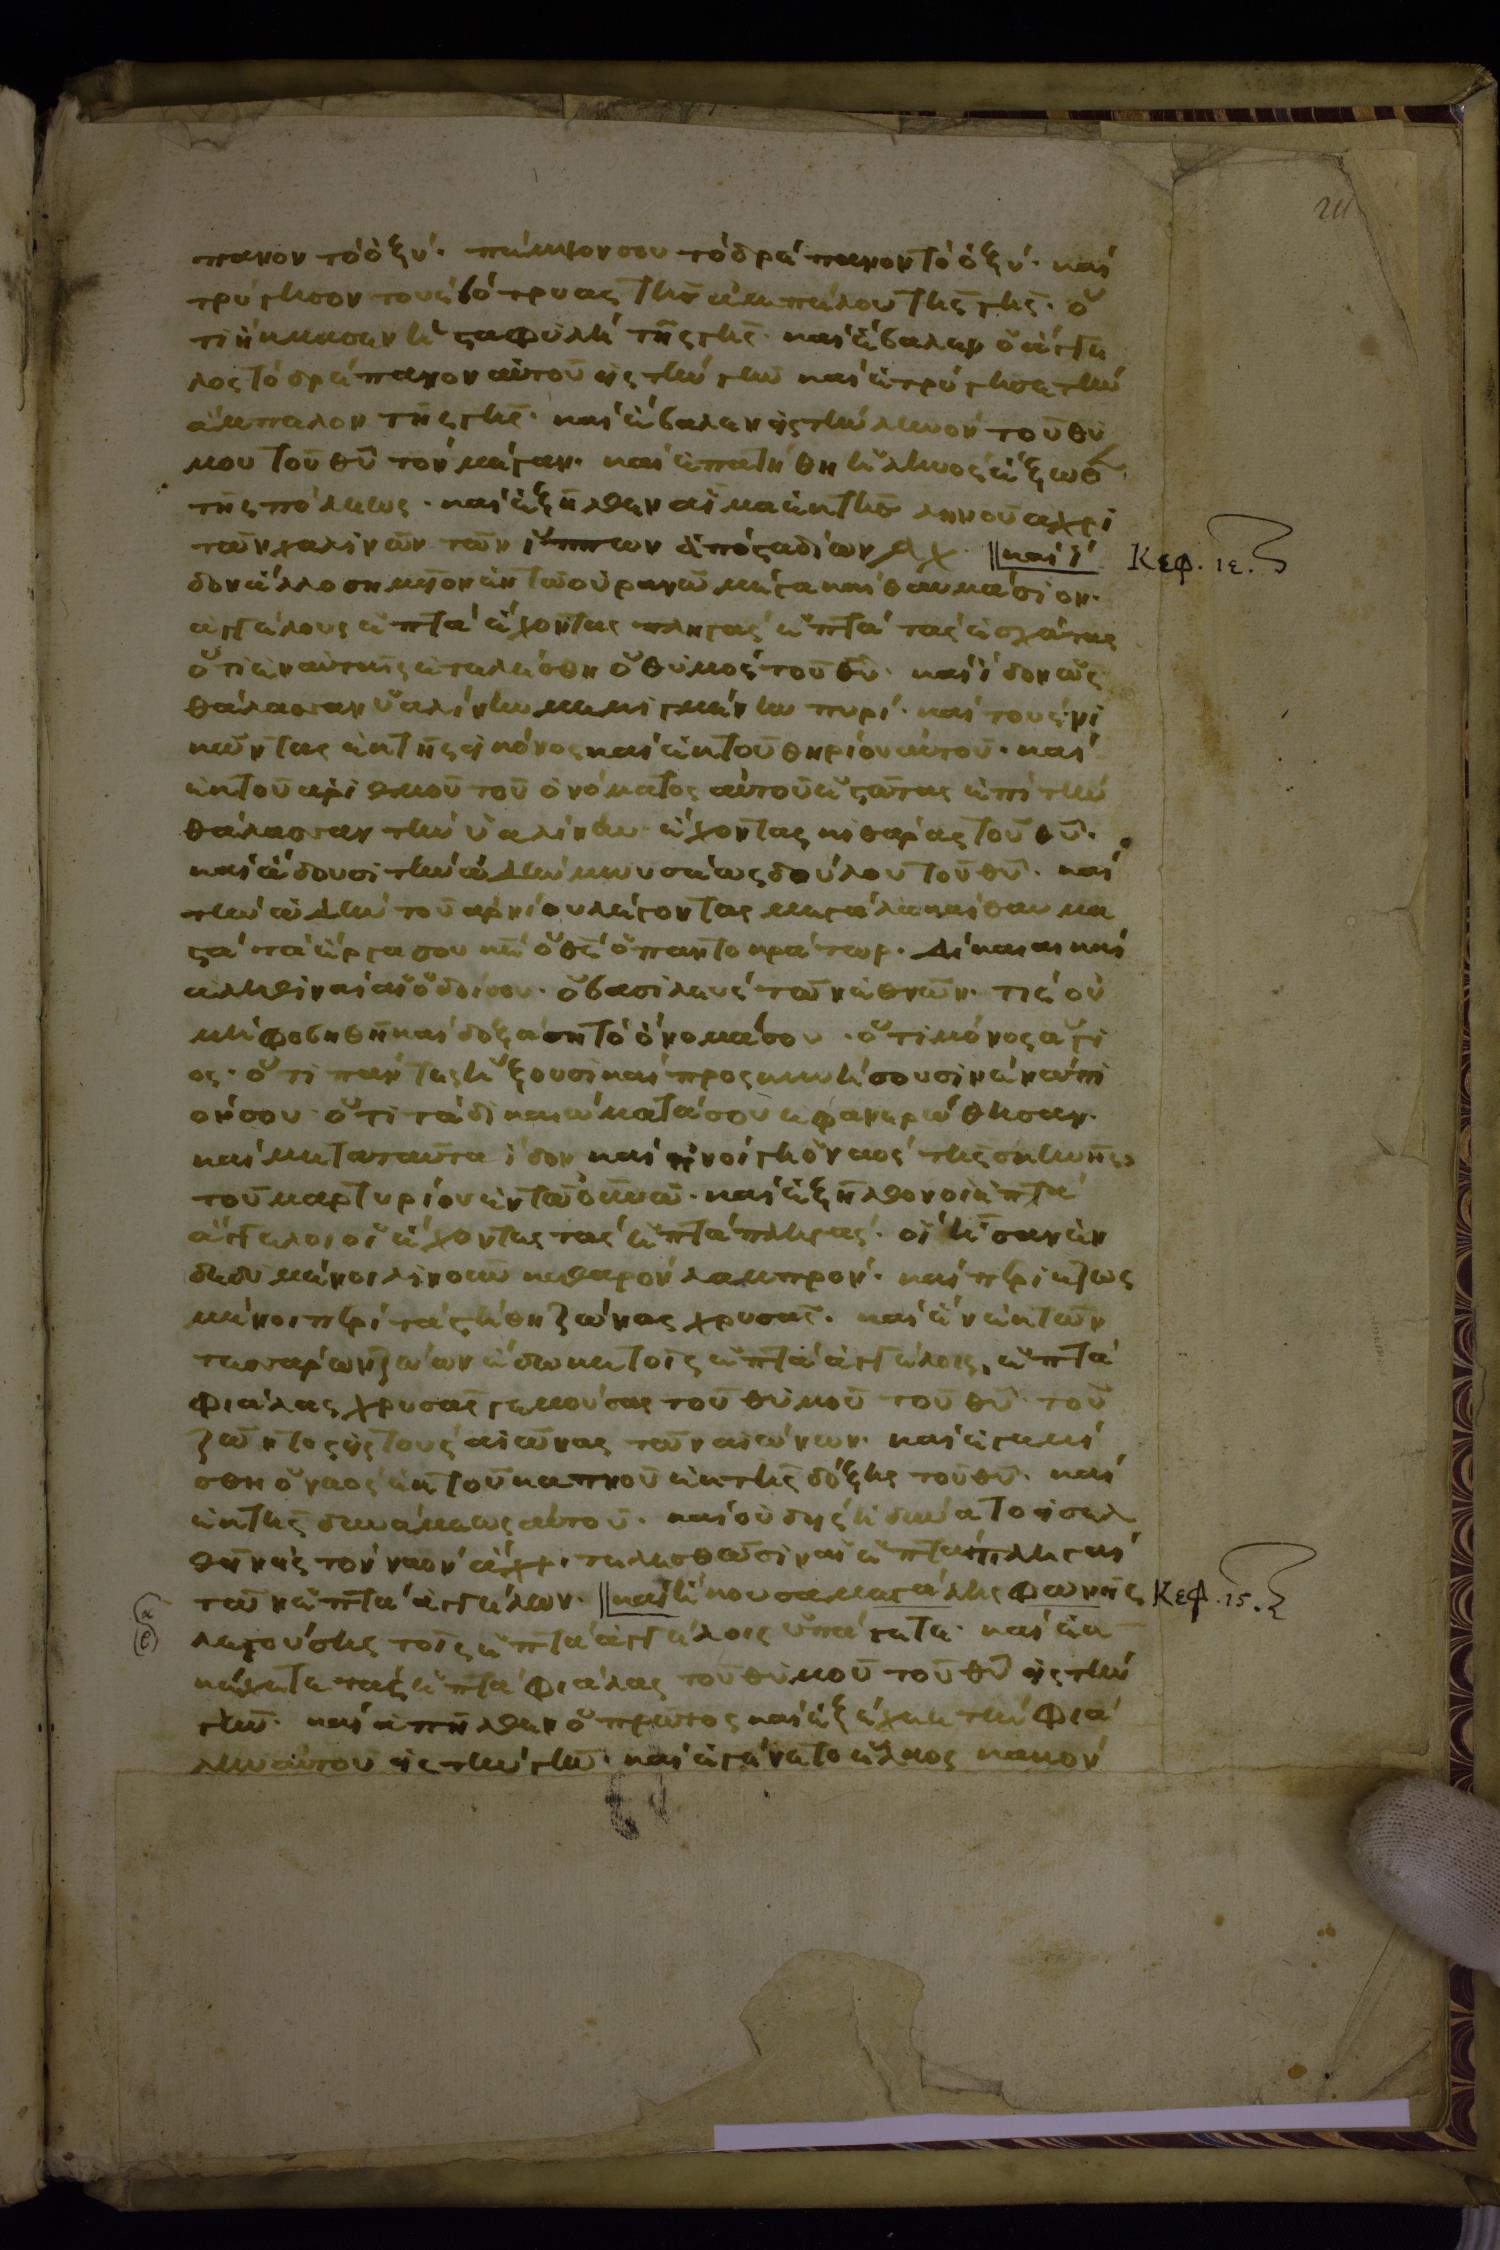 πανον τὸ ὀξύ· πέμψον σου τὸ δρέπανον τὸ ὀξύ· καὶ
τρύγησον τοὺς βότρυας τῆς ἀμπέλου τῆς γῆς· ὅ
τι ἤκμασεν ἡ σταφυλὴ τῆς γῆς· καὶ ἔβαλεν ὁ ἄγγε
λος τὸ δρέπανον αὐτοῦ εἰς τὴν γῆν καὶ ἐτρύγησε τὴν
ἄμπελον τῆς γῆς· καὶ ἔβαλεν εἰς τὴν ληνὸν τοῦ θυ
μοῦ τοῦ θῦ τὸν μέγαν· καὶ ἐπατήθη ἡ ληνὸς ἔξωθ
τῆς πόλεως· καὶ ἐξῆλθεν αἷμα ἐκ τῆς ληνοῦ ἄχρι
τῶν χαλινῶν τῶν ἵππων ἀπὸ σταδίων ͵αχ· || καὶ ἴ Κεφ. ιε.
δον ἄλλο σημεῖον ἐν τῶ οὐρανῶ μέγα καὶ θαυμάσιον·
ἀγγέλους ἑπτὰ ἔχοντας πληγὰς ἑπτὰ τὰς ἐσχάτας
ὅτι ἐν αὐταῖς ἐτελέσθη ὁ θυμὸς τοῦ θῦ· καὶ ἴδον ὡς
θάλασσαν ὑαλίνην μεμιγμένην πυρί· καὶ τοὺς νι
κῶντας ἐκ τῆς εἰκόνος καὶ ἐκ τοῦ θηρίου αὐτοῦ· καὶ
ἐκ τοῦ ἀριθμοῦ τοῦ ὀνόματος αὐτοῦ ἑστῶτας ἐπὶ τὴν
θάλασσαν τὴν ὑαλίνην ἔχοντας κιθάρας τοῦ θῦ·
καὶ ἄδουσι τὴν ὠδὴν μωυσέως δούλου τοῦ θῦ· καὶ
τὴν ὠδὴν τοῦ ἀρνίου λέγοντας μεγάλα καὶ θαυμα
στὰ τὰ ἔργα σου κε ὁ θς ὁ παντοκράτωρ· δίκαιαι καὶ
ἀληθιναὶ αἱ ὁδοί σου· ὁ βασιλεὺς τῶν ἐθνῶν· τίς οὐ
μὴ φοβηθῆ καὶ δοξάση τὸ ὄνομά σου· ὅτι μόνος ἅγι
ος· ὅτι πάντες ἥξουσι καὶ προσκυνήσουσιν ἐνώπι
ον σου· ὅτι τὰ δικαιώματά σου ἐφανερώθησαν·
καὶ μετὰ ταῦτα ἴδον καὶ ἠνοίγη ὁ ναὸς τῆς σκηνῆς
τοῦ μαρτυρίου ἐν τῶ οὐνῶ· καὶ ἐξῆλθον οἱ ἑπτὰ
ἄγγελοι οἱ ἔχοντες τὰς ἑπτὰ πληγάς· οἳ ἦσαν ἐν
δεδυμένοι λινοῦν καθαρὸν λαμπρόν· καὶ περιεζωσ
μένοι περὶ τὰ στήθη ζώνας χρυσᾶς· καὶ ἓν ἐκ τῶν
τεσσάρων ζώων ἔδωκε τοῖς ἑπτὰ ἀγγέλοις, ἑπτὰ
φιάλας χρυσᾶς γεμούσας τοῦ θυμοῦ τοῦ θῦ τοῦ
ζῶντος εἰς τοὺς αἰῶνας τῶν αἰώνων· καὶ ἐγεμί
σθη ὁ ναὸς ἐκ τοῦ καπνοῦ ἐκ τῆς δόξης τοῦ θῦ· καὶ
ἐκ τῆς δυνάμεως αὐτοῦ· καὶ οὐδεὶς ἠδύνατο εἰσελ
θεῖν εἰς τὸν ναὸν ἄχρι τελεσθῶσιν αἱ ἑπτὰ πληγαὶ
τῶν ἑπτὰ ἀγγέλων· || καὶ ἤκουσα μεγάλης φωνῆς Κεφ. ιϛ.
λεγούσης τοῖς ἑπτὰ ἀγγέλοις ὑπάγετε· καὶ ἐκ
χέετε τὰς ἑπτὰ φιάλας τοῦ θυμοῦ τοῦ θῦ εἰς τὴν
γῆν· καὶ ἀπῆλθεν ὁ πρῶτος καὶ ἐξέχεε τὴν φιά
λην αὐτοῦ εἰς τὴν γῆν· καὶ ἐγένετο ἕλκος κακὸν